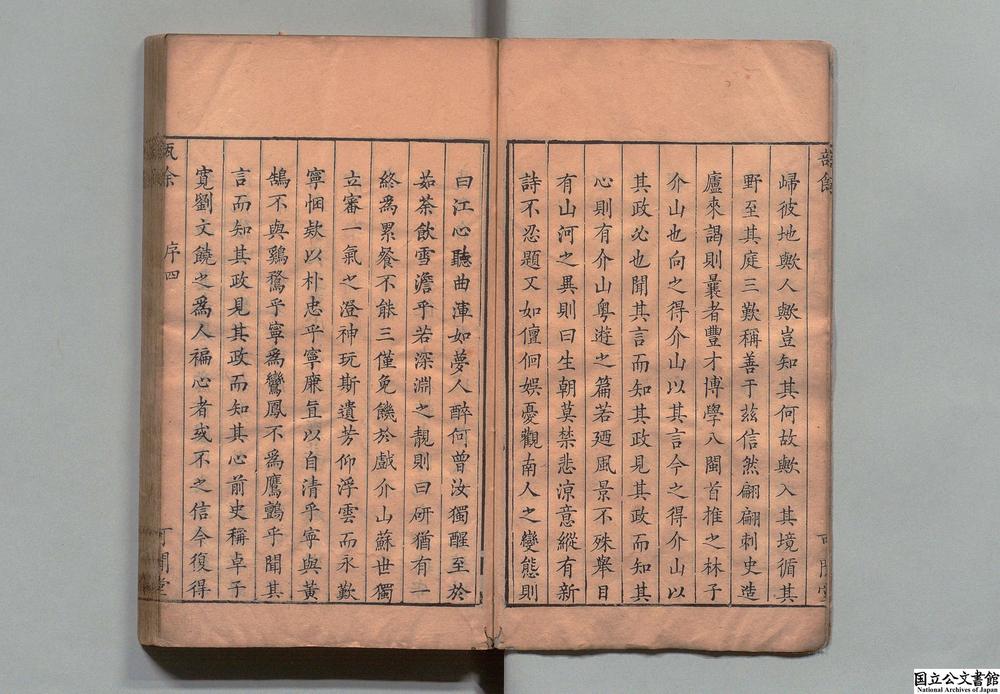 歸彼地歟人歟豈知其何故歟入其境循其
野至其庭三歎稱善于茲信然翩翩刺史造
廬來謁則曩者豐才博學八閩首推之林子
介山也向之得介山以其言今之得介山以
其政必也聞其言而知其政見其政而知其
心則有介山粵遊之篇若廼風景不殊舉目
有山河之異則曰生朝莫禁悲涼意縱有新
詩不忍題又如儃佪娛憂觀南人之變態則
曰江心聽曲渾如夢人醉何曾汝獨醒至於
茹荼飲雪澹乎若深淵之靚則曰研猶有一
終為累餐不能三僅免饑於戲介山蘇世獨
立審一氣之澄神玩斯遺芳仰浮雲而永歎
寧悃欵以朴忠乎寧廉宜以自清乎寧與黃
鵠不與鷄鶩乎寧為鸞鳳不為鷹鸇乎聞其
言而知其政見其政而知其心前史稱卓子
寬劉文饒之為人褊心者或不之信今復得
序四
国立公文書館
National Archives of Japan